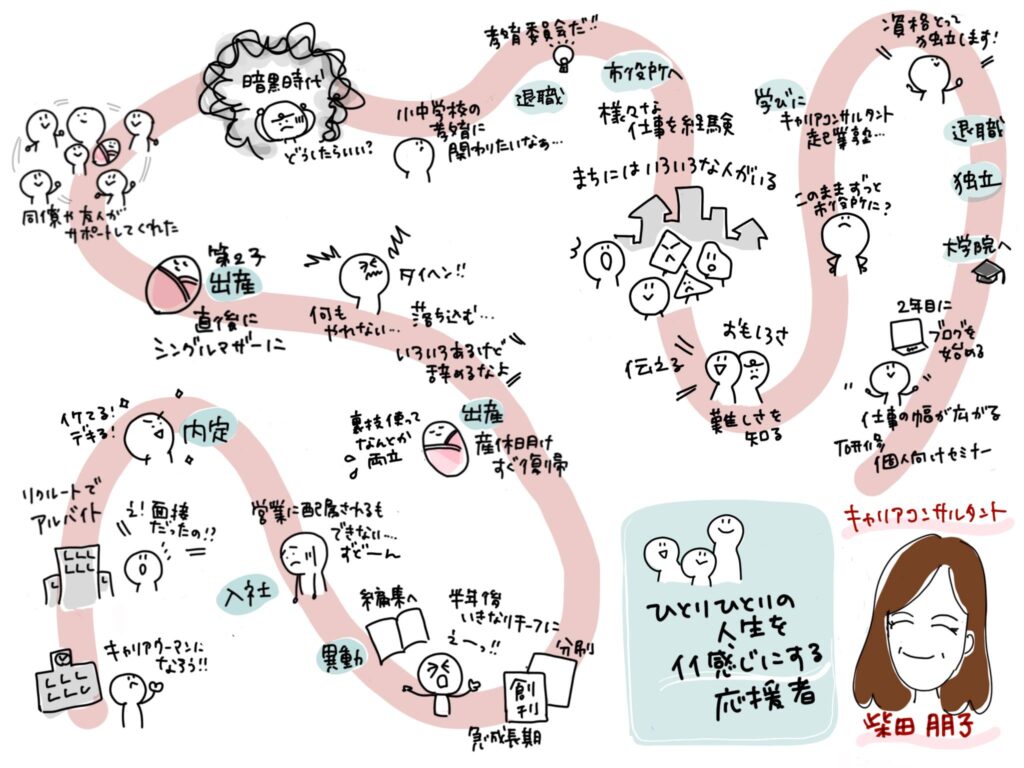 キャリアウーマンに
なろう!!
リクルートで
アルバイト
え!面接
だったの!?
イケてる!
デキる!
内定
入社
営業に配属されるも
できない…
ずどーん
異動
編集へ
半年後
いきなりチーフに
えーっ!!
創刊
分割
急成長期
出産
産休明け
すぐ復帰
裏技使って
なんとか
両立
いろいろあるけど
辞めるなよ
タイヘン!!
何も
やれない…
落ち込む…
第2子
出産
直後に
シングルマザーに
同僚や友人が
サポートしてくれた
暗黒時代
どうしたらいい?
小中学校の
教育に
関わりたいなぁ…
退職
教育委員会だ!!
市役所へ
様々な
仕事を経験
まちにはいろいろな人がいる
伝える
おもしろさ
難しさを
知る
このままずっと
市役所に?
学びに
キャリアコンサルタント
起業塾…
資格とって
独立します!
退職
独立
大学院へ
2年目に
ブログを
始める
仕事の幅が広がる
研修
個人向けセミナー
キャリアコンサルタント
柴田 朋子
ひとりひとりの
人生を
イイ感じにする
応援者